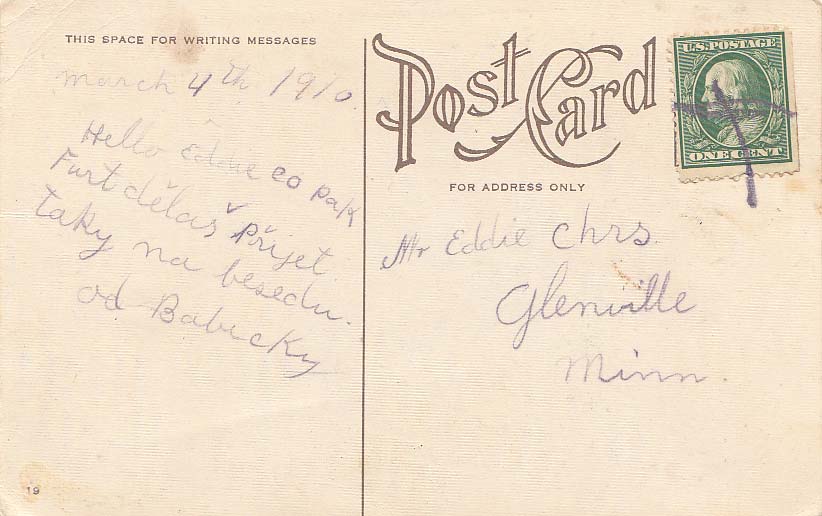 THIS SPACE FOR WRITING MESSAGES
March 4th 1910.
Hello Eddie co pak
Furt dělaš přijet
taky na besedu.
od Babicky
Post Card
FOR ADDRESS ONLY
U.S. POSTAGE
ONE CENT
Mr Eddie Chrs.
Glenville
Minn.
19